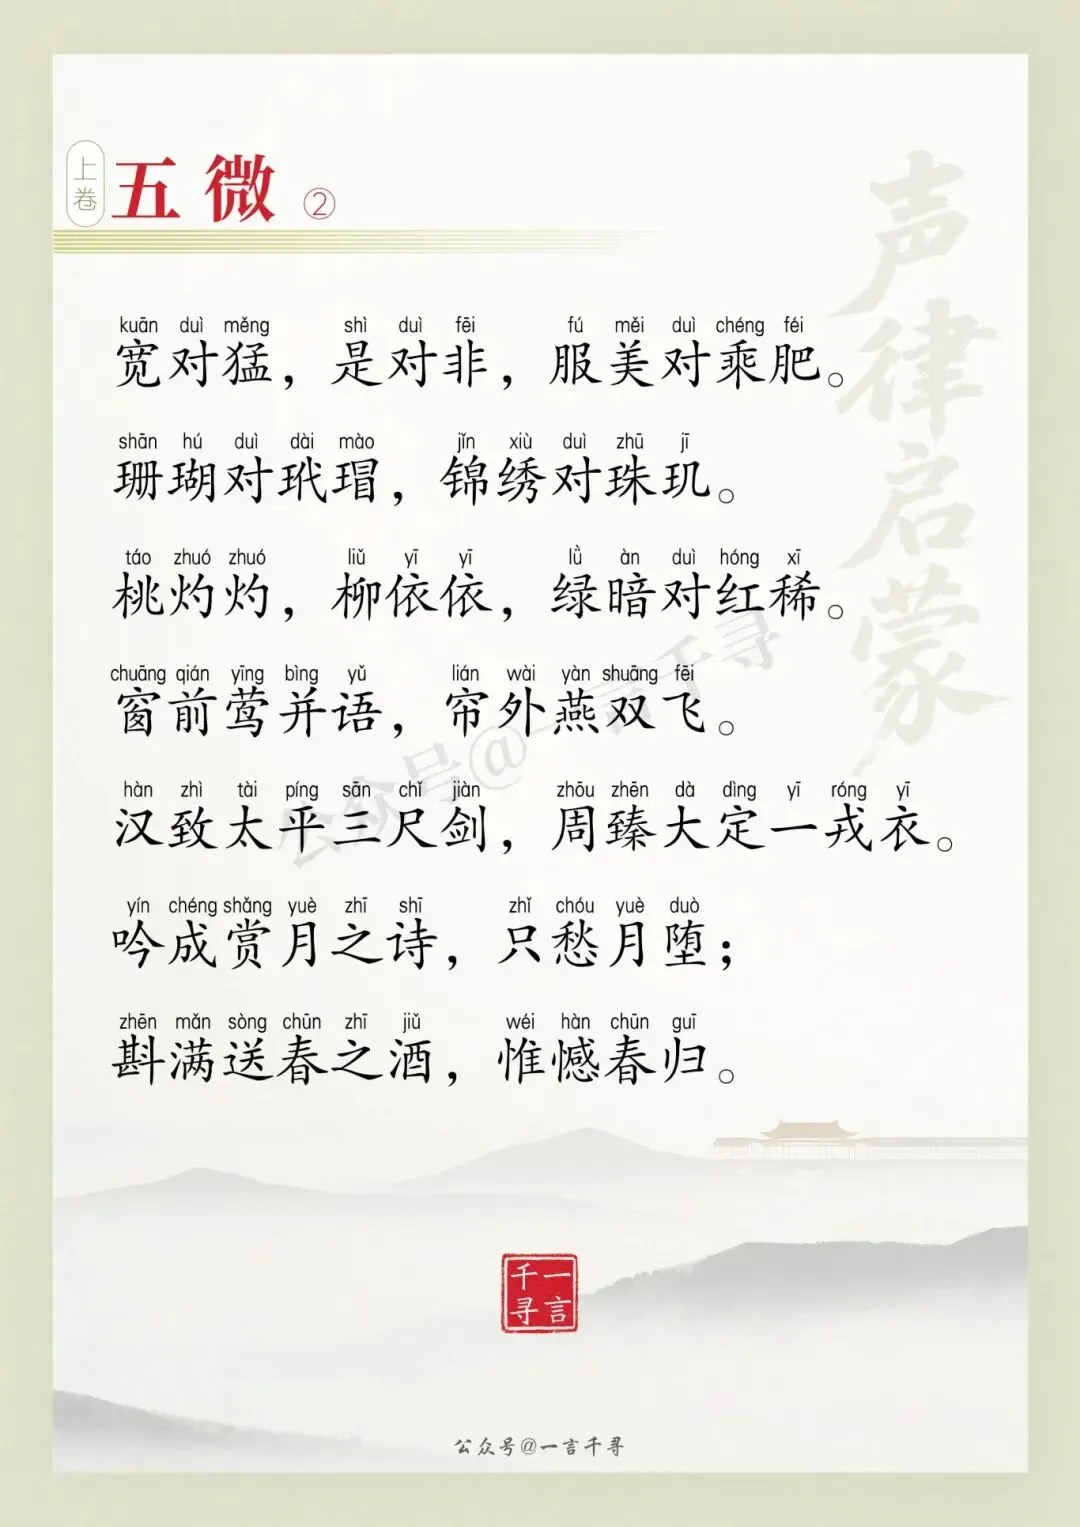 上卷
五微 ②
声律启蒙
kuān duì měng shì duì fēi fú měi duì chéng féi
宽对猛，是对非，服美对乘肥。
shān hú duì dài mào jǐn xiù duì zhū jī
珊瑚对玳瑁，锦绣对珠玑。
táo zhuó zhuó liǔ yī yī lǜ àn duì hóng xī
桃灼灼，柳依依，绿暗对红稀。
chuāng qián yīng bìng yǔ lián wài yàn shuāng fēi
窗前莺并语，帘外燕双飞。
hàn zhì tài píng sān chǐ jiàn zhōu zhēn dà dìng yī róng yī
汉致太平三尺剑，周臻大定一戎衣。
yín chéng shǎng yuè zhī shī zhǐ chóu yuè duò
吟成赏月之诗，只愁月堕；
zhēn mǎn sòng chūn zhī jiǔ wéi hàn chūn guī
斟满送春之酒，惟憾春归。
公众号@一言千寻
一言千寻
公众号@一言千寻